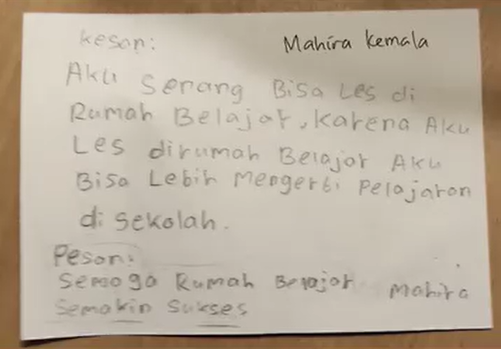 Kesan:
Mahira Kemala
Aku Senang Bisa Les di
Rumah Belajar, Karena Aku
Les dirumah Belajar Aku
Bisa Lebih Mengerti Pelajaran
di Sekolah.
Pesan:
Semoga Rumah Belajar Mahira
Semakin Sukses